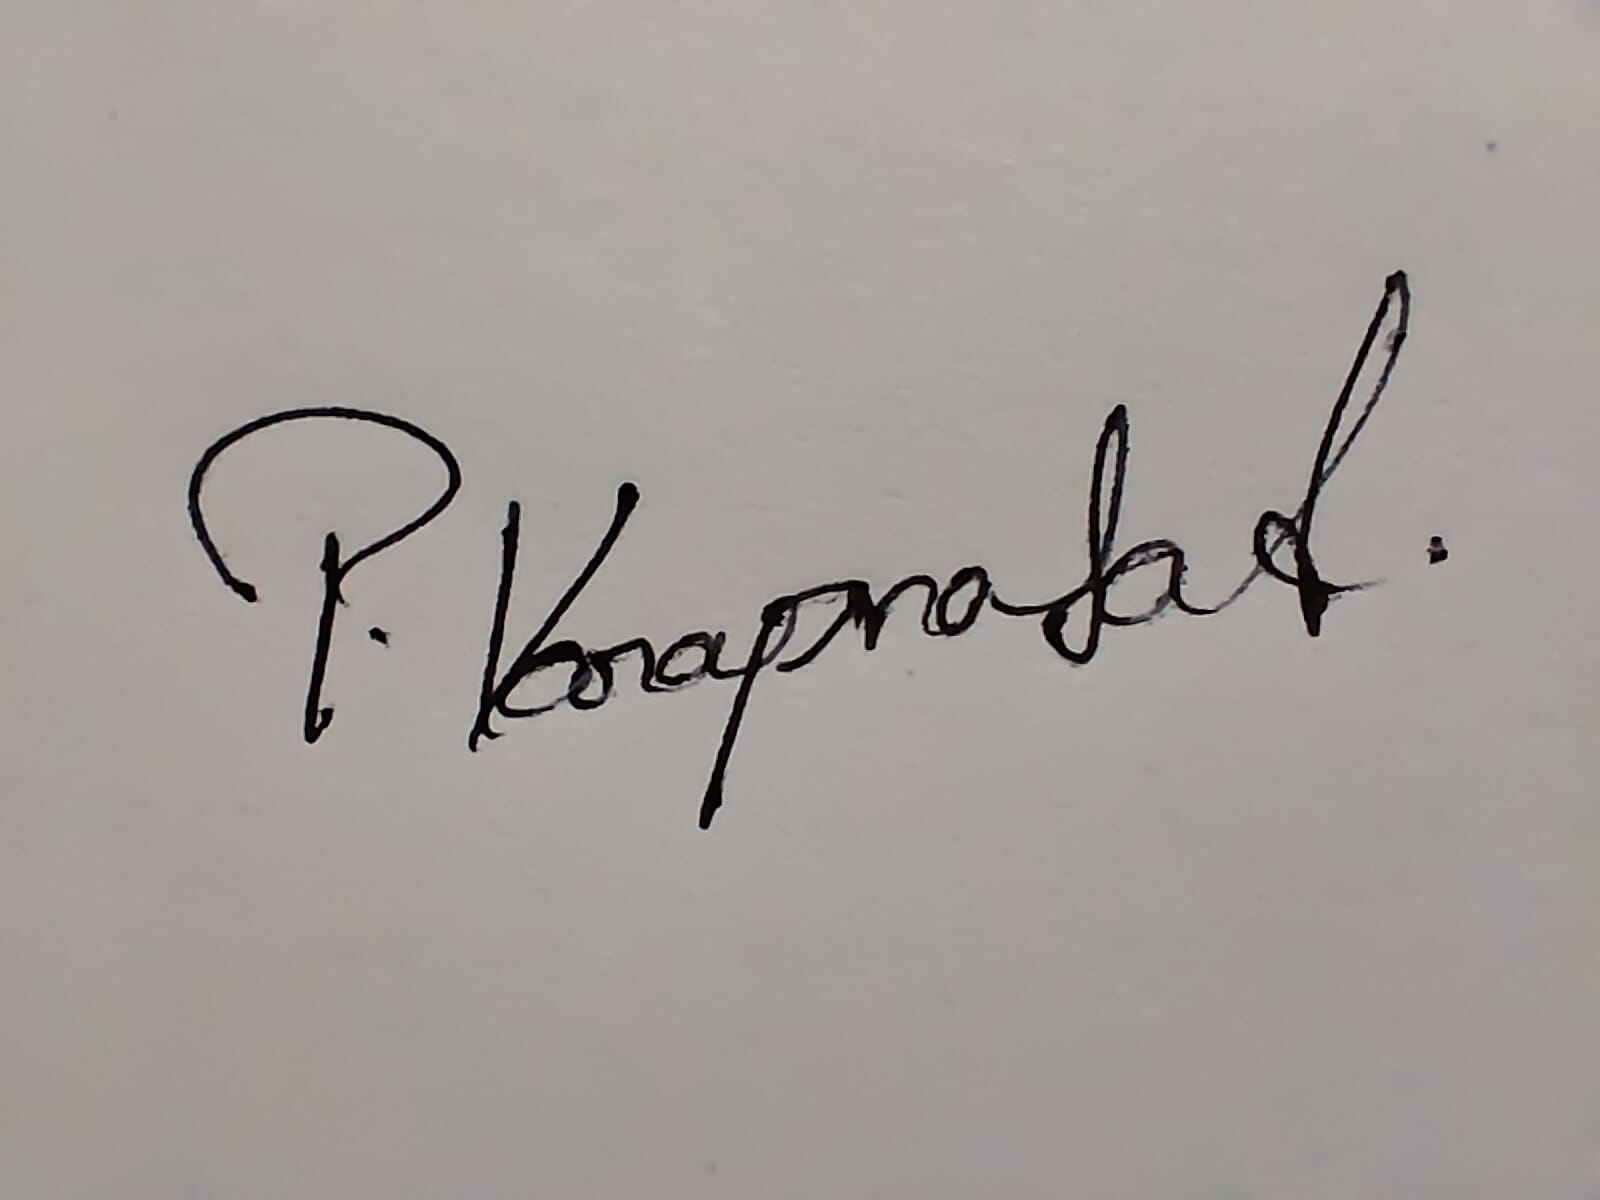 P. Koraprasad.